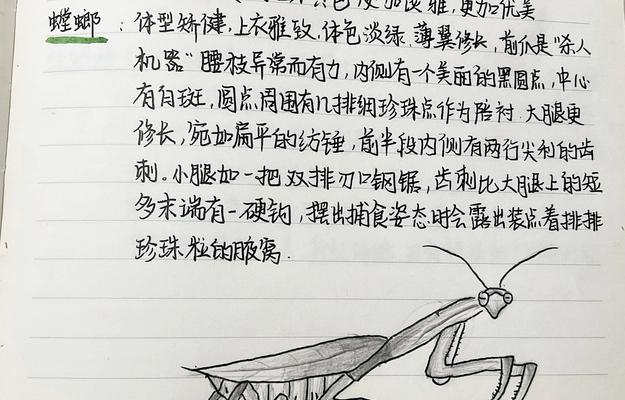 更加淡雅,更加优美
螳螂:体型矫健,上衣雅致,体色淡绿,薄翼修长,前爪是“杀人
机器”腰被异常而有力,内侧有一个美丽的黑圆点,中心
有白斑,圆点周围有几排细珍珠点作为陪衬.大腿更
修长,宛如扁平的纺锤,前半段内侧有两行尖利的齿
刺。小腿如一把双排刃口钢锯,齿刺比大腿上的短
多末端有一硬钩,摆出捕食姿态时会露出装点着排排
珍珠粒的腋窝.